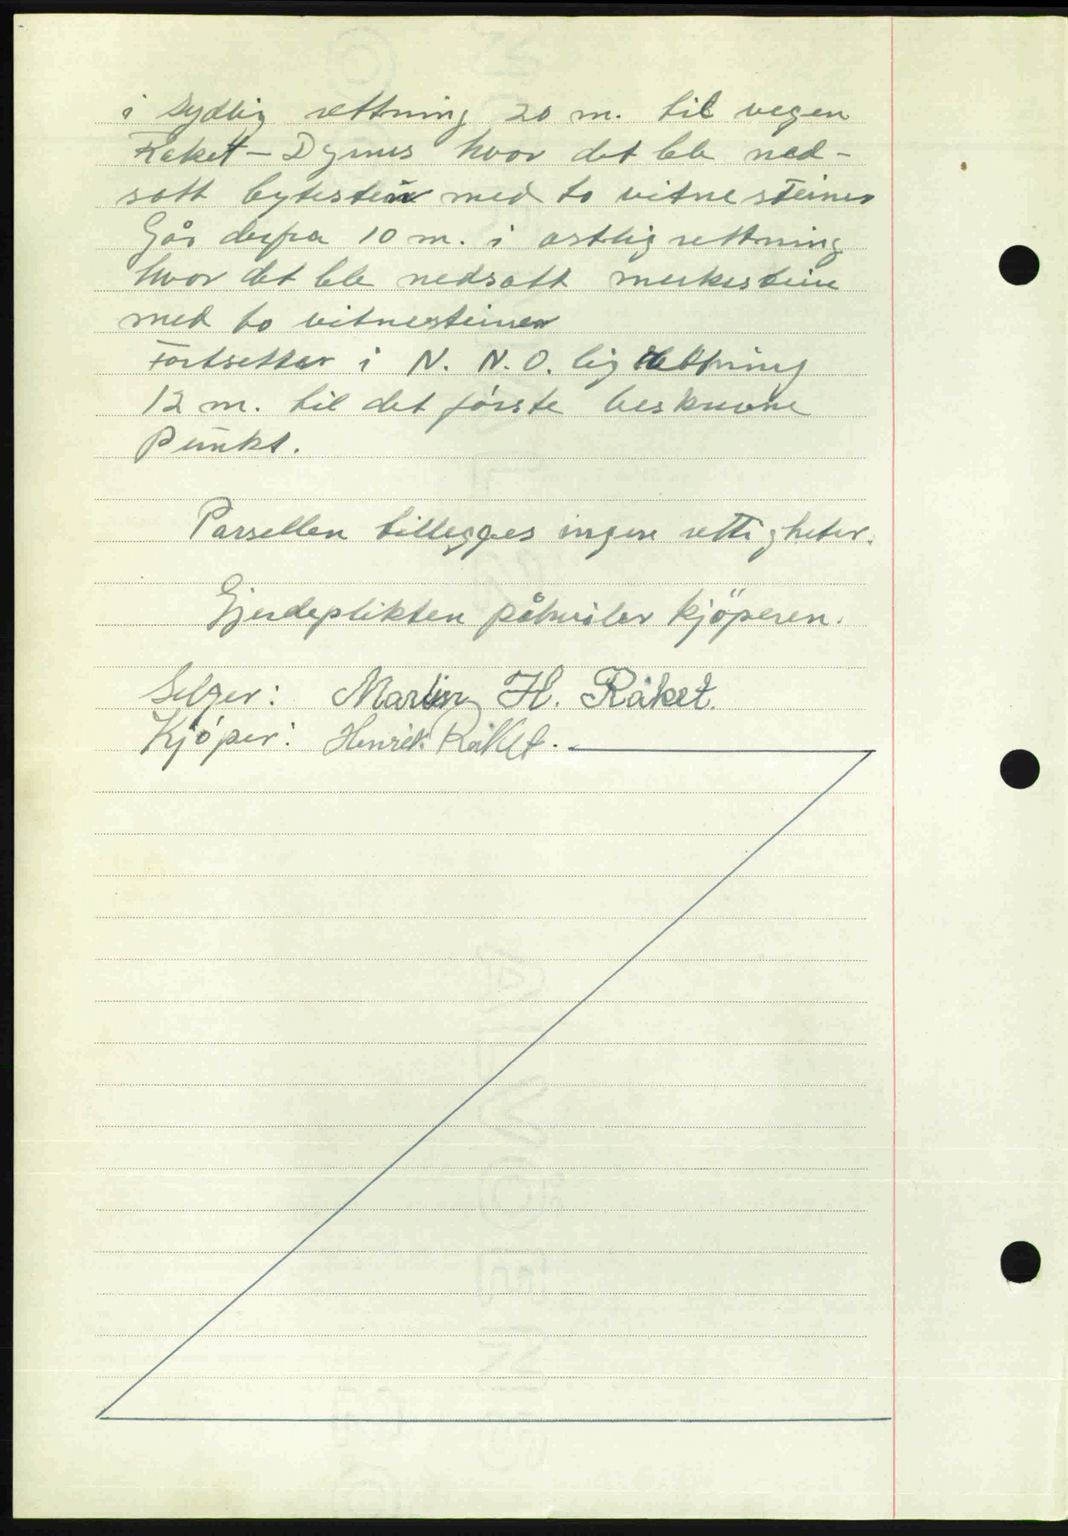 i sydlig rettning 20 m. til vegen
Råket – Dyrnes hvor det ble ned-
satt bytestein med to vitnesteiner
Går derfra 10 m. i østlig rettning
hvor det ble nedsatt merkestein
med to vitnesteiner
Fortsetter i N. N. O. lig rettning
12 m. til det første beskrevne
Punkt.
Parsellen tillegges ingen rettigheter.
Gjerdeplikten påhviler kjöperen.
Selger: Martin H. Råket.
Kjøper: Henrik Råket.